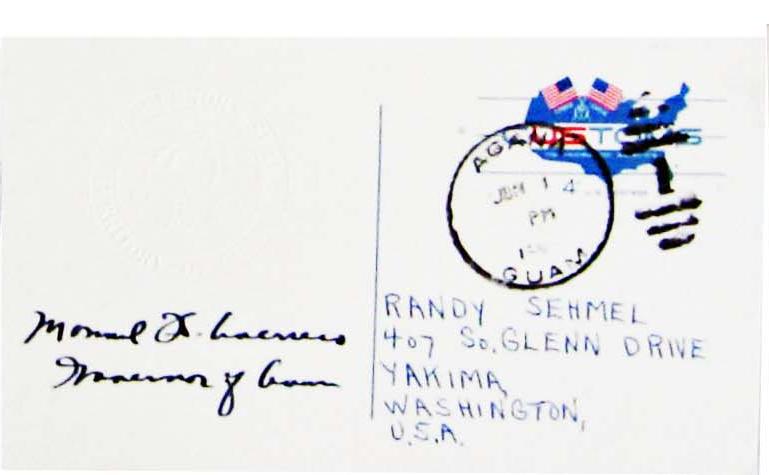 Manuel Guerrero
Governor of Guam
CUSTOMS
4
AGANA
JUN 1
PM
GUAM
RANDY SEHMEL
407 So. GLENN DRIVE
YAKIMA,
WASHINGTON,
U.S.A.